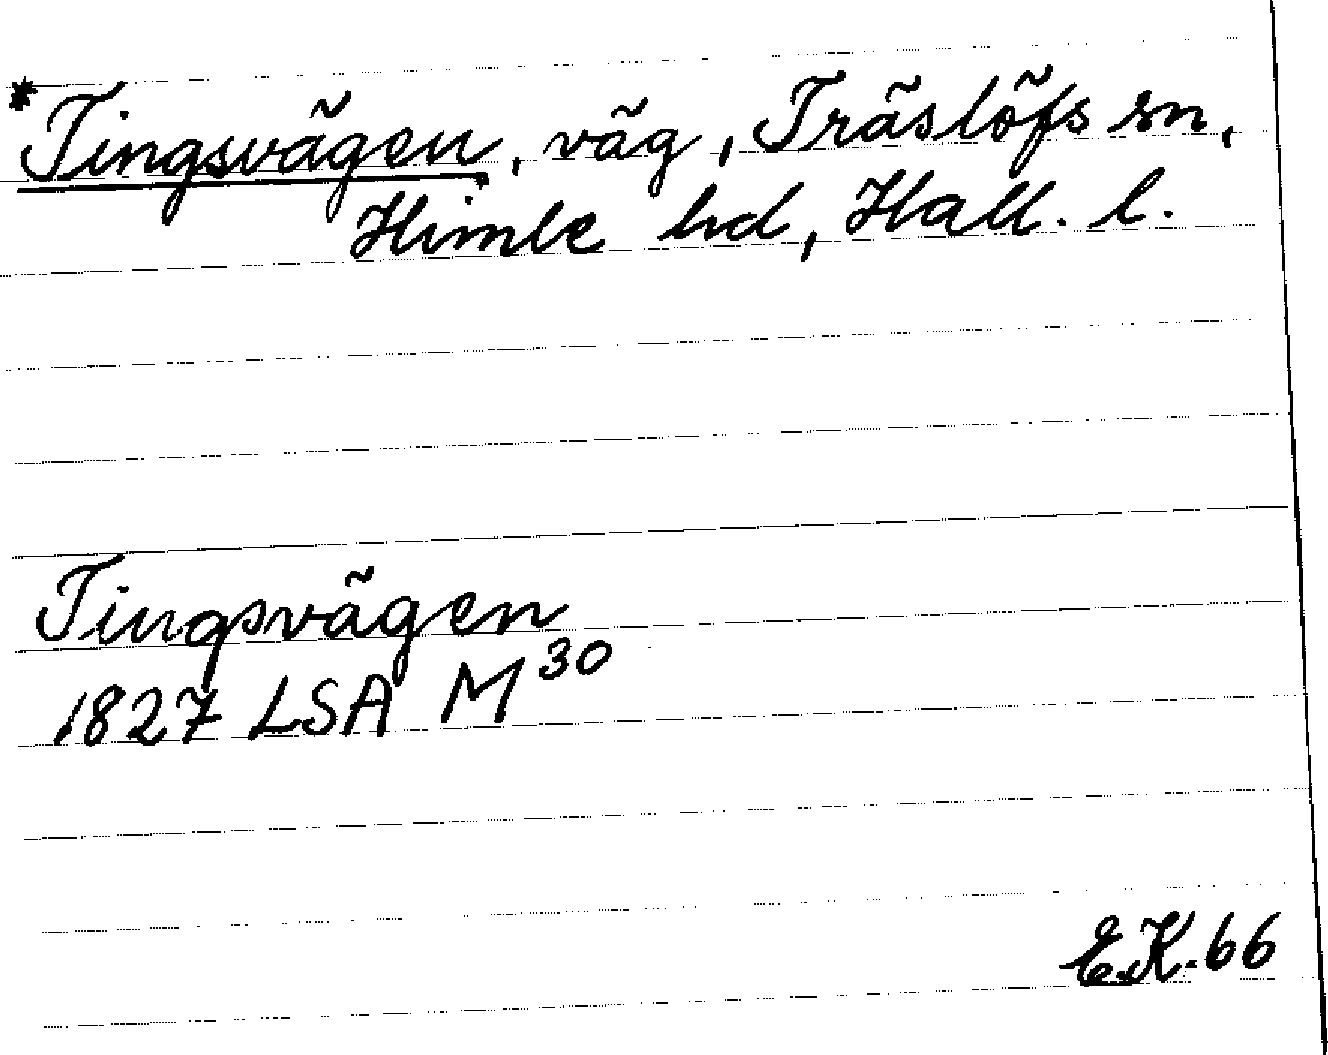 *Tingsvägen, väg, Träslöfs sn,
Himle hd, Hall. l.
Tingsvägen
1827 LSA M30
E.K.66